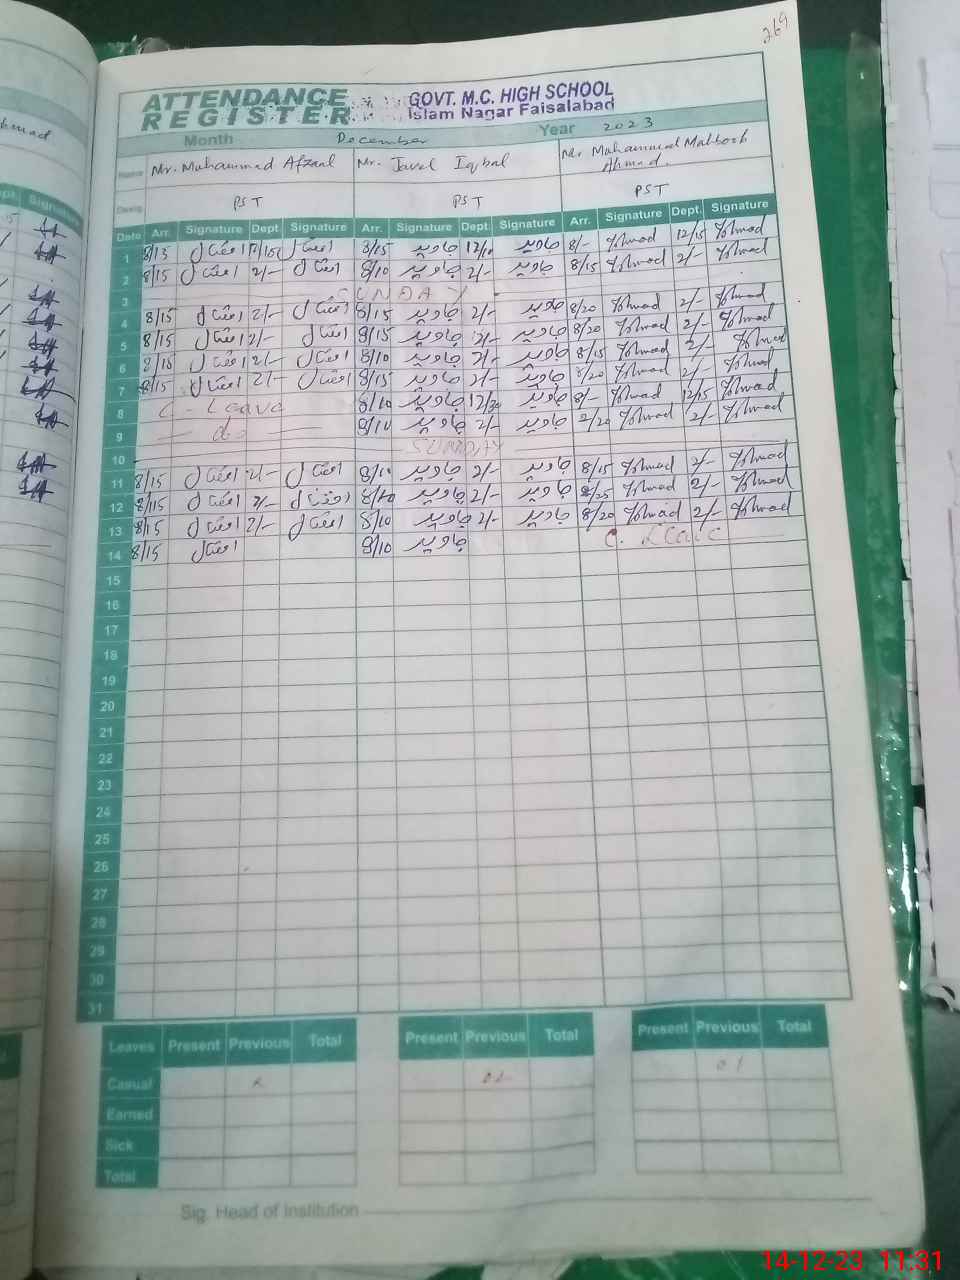 269
ATTENDANCE REGISTER
GOVT. M.C. HIGH SCHOOL
Islam Nagar Faisalabad
Month December Year 2023
Name Mr. Muhammad Afzaal Mr. Javed Iqbal Mr. Muhammad Mahboob Ahmad
Desig. PST PST PST
Date Arr. Signature Dept. Signature Arr. Signature Dept. Signature Arr. Signature Dept. Signature
1 8/15 افضال 12/15 افضال 8/15 جاوید 12/10 جاوید 8/- Ahmad 12/15 Ahmad
2 8/15 افضال 2/- افضال 8/10 جاوید 2/- جاوید 8/15 Ahmad 2/- Ahmad
3 SUNDAY
4 8/15 افضال 2/- افضال 8/15 جاوید 2/- جاوید 8/20 Ahmad 2/- Ahmad
5 8/15 افضال 2/- افضال 8/15 جاوید 2/- جاوید 8/20 Ahmad 2/- Ahmad
6 8/15 افضال 2/- افضال 8/10 جاوید 2/- جاوید 8/15 Ahmad 2/- Ahmad
7 8/15 افضال 2/- افضال 8/15 جاوید 2/- جاوید 8/20 Ahmad 2/- Ahmad
8 C- Leave 8/10 جاوید 12/30 جاوید 8/- Ahmad 12/15 Ahmad
9 — do — 8/10 جاوید 2/- جاوید 8/20 Ahmad 2/- Ahmad
10 SUNDAY
11 8/15 افضال 2/- افضال 8/10 جاوید 2/- جاوید 8/15 Ahmad 2/- Ahmad
12 8/15 افضال 2/- افضال 8/10 جاوید 2/- جاوید 8/25 Ahmad 2/- Ahmad
13 8/15 افضال 2/- افضال 8/10 جاوید 2/- جاوید 8/20 Ahmad 2/- Ahmad
14 8/15 افضال 8/10 جاوید C. Leave
15
16
17
18
19
20
21
22
23
24
25
26
27
28
29
30
31
Leaves Present Previous Total Present Previous Total Present Previous Total
Casual 01
Earned
Sick
Total
Sig. Head of Institution
14-12-23 11:31